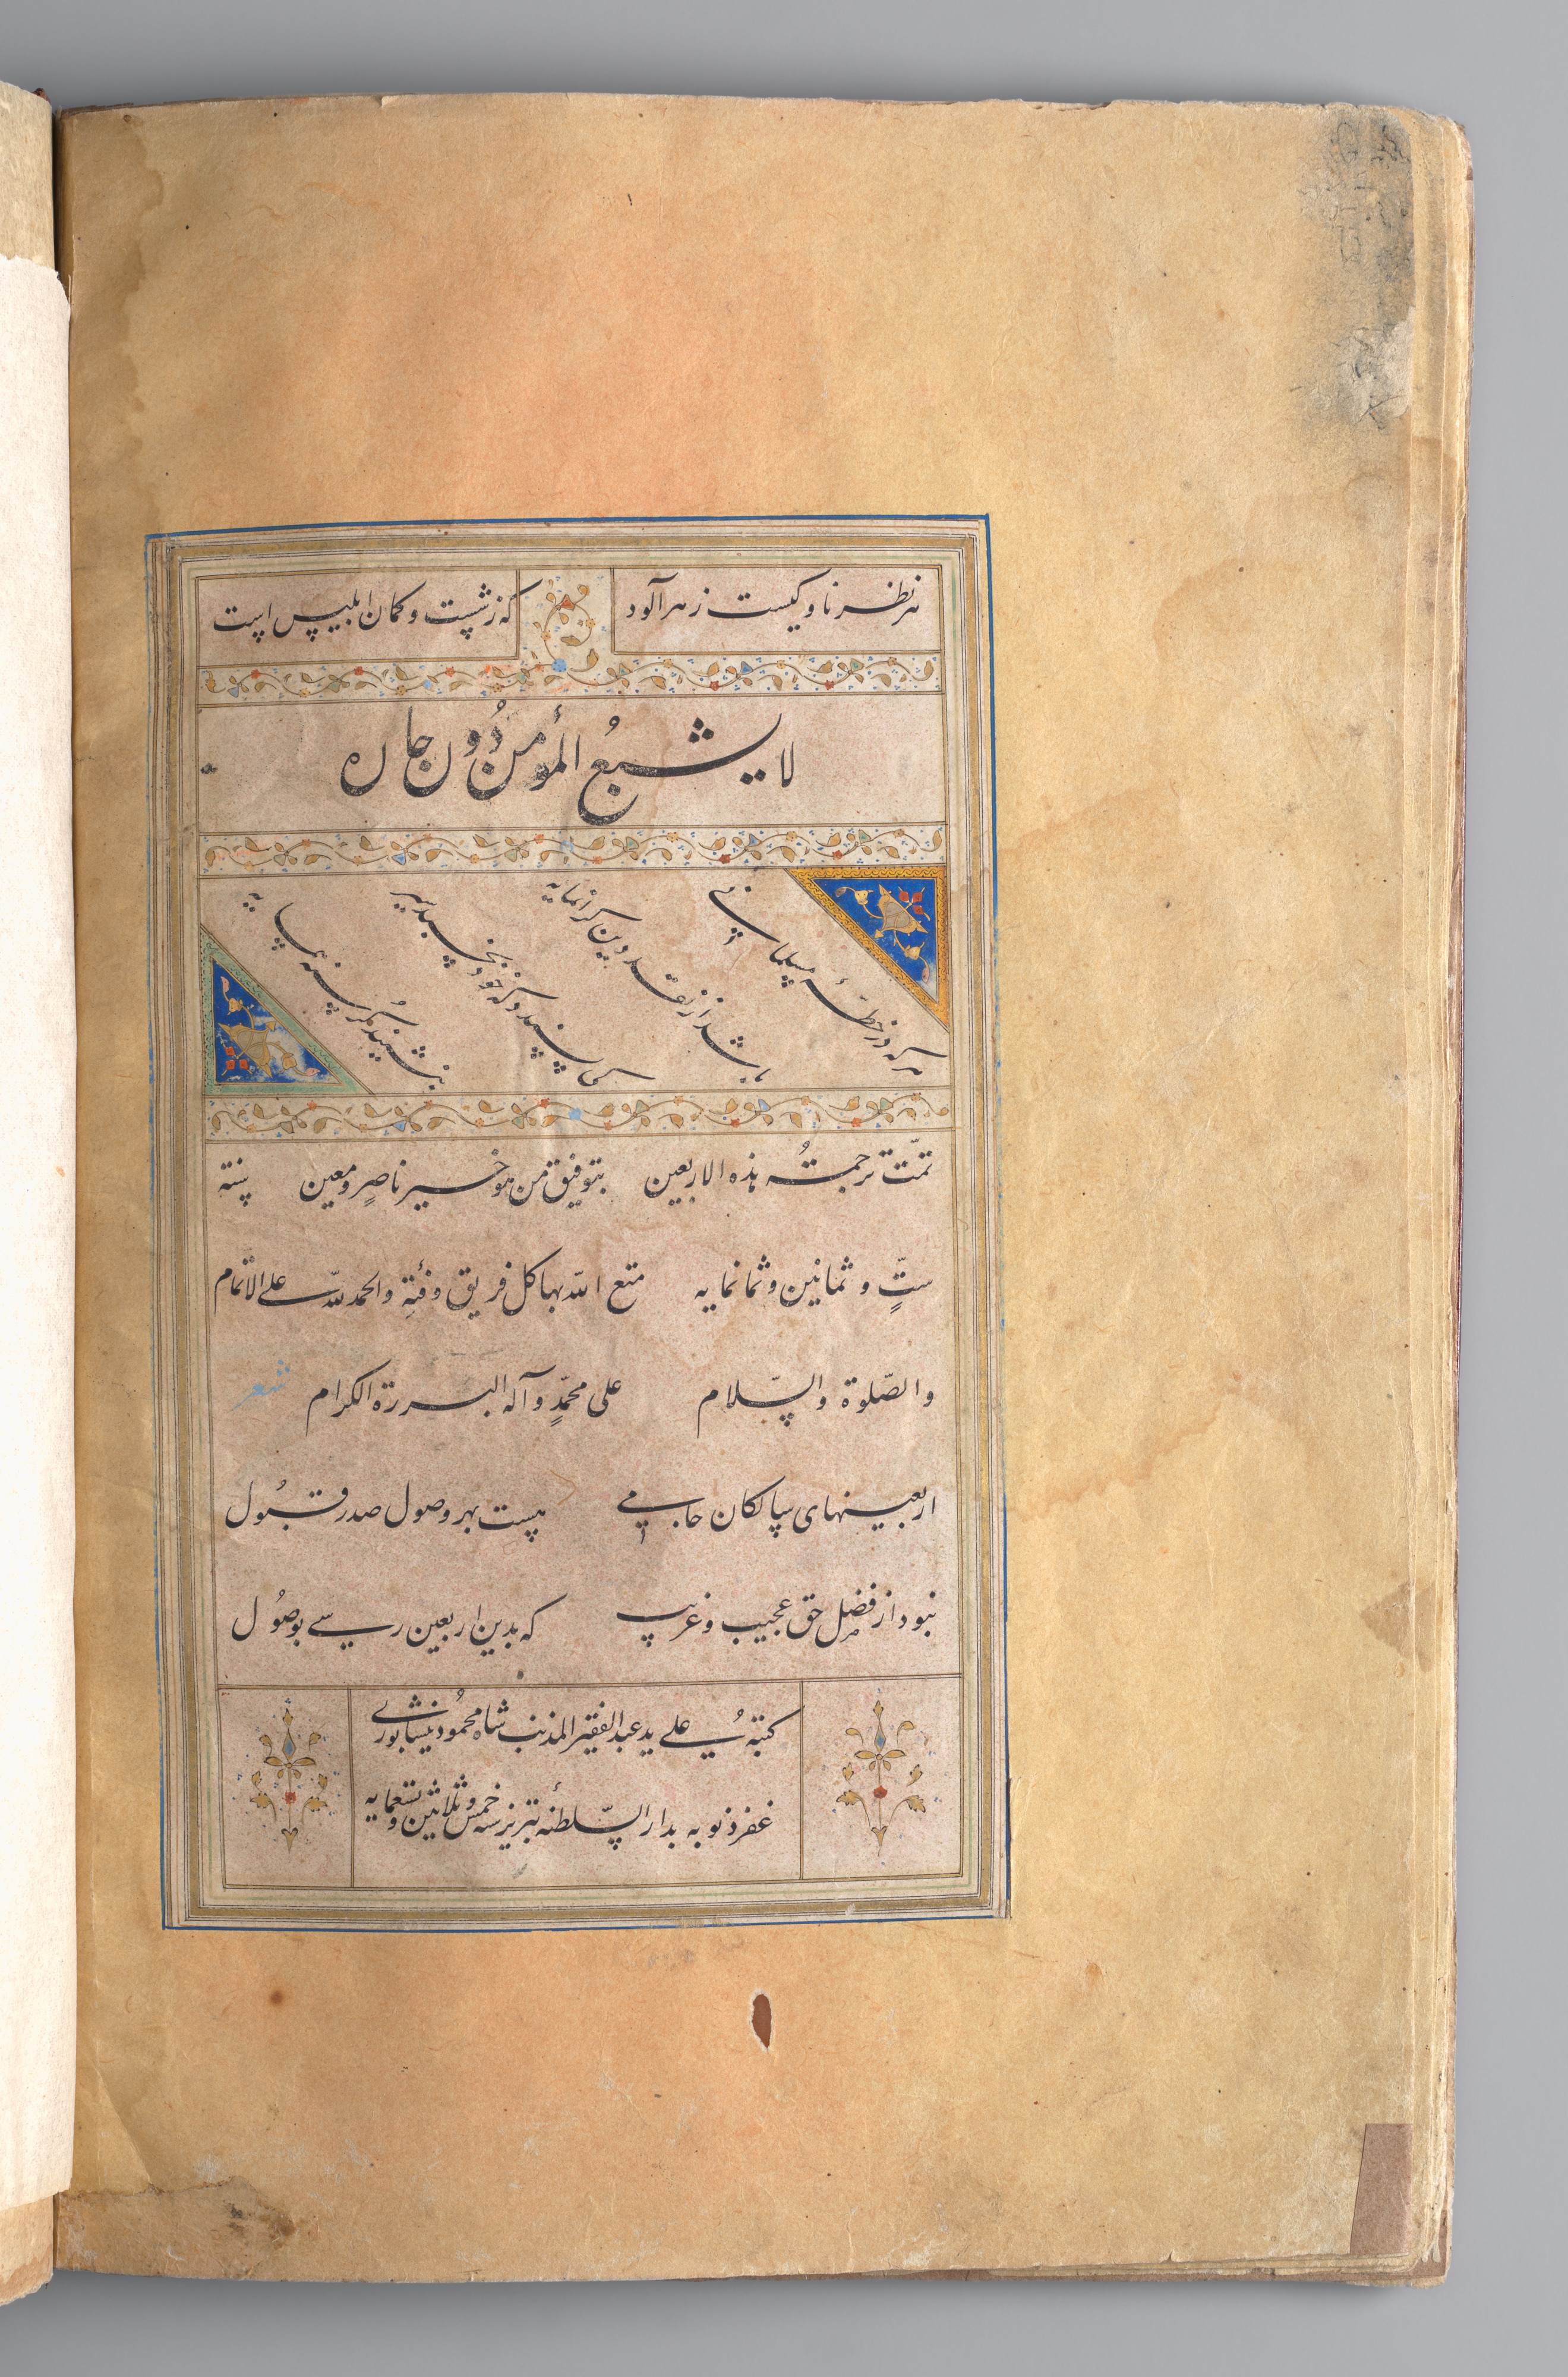 هر نظر ناوکیست زهرآلود که ز شست و کمان ابلیس است
لا یشبعُ المؤمن دُون جاره
هر که در خطهٔ مسلمانی
باشد از نقد دین گرانمایه
کی پسندد که خود بخسبد سیر
بنشیند گرسنه همسایه
تمّت ترجمتُه هذه الاربعین بتوفیق من هو خیر ناصرٍ ومعین سنته
ستٍّ و ثمانین وثمانمایه متع الله بها کل فریق وفئةٍ والحمد للّه علی الاتمام
والصّلوة والسّلام علی محمّدٍ وآله البررة الکرام شعر
اربعینهای سالکان جامی هست بهر وصول صدر قبُول
نبود از فضل حق عجیب و غریب که بدین اربعین رسی بوصُول
کتبهُ علی ید عبد الفقیر المذنب شاه محمُود نیشابوری
غفر ذنوبه بدار السّلطنهٔ تبریز سنه خمس و ثلاثین و تسعمایه